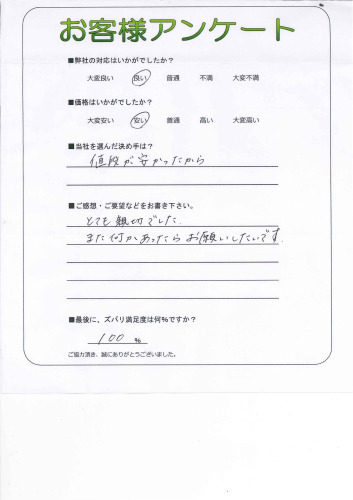 お客様アンケート
■弊社の対応はいかがでしたか?
大変良い 良い 普通 不満 大変不満
■価格はいかがでしたか?
大変安い 安い 普通 高い 大変高い
■当社を選んだ決め手は?
値段が安かったから
■ご感想・ご要望などをお書き下さい。
とても親切でした。
また何かあったらお願いしたいです。
■最後に、ズバリ満足度は何%ですか?
100 %
ご協力頂き、誠にありがとうございました。